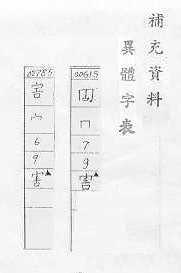 補充資料
異體字表
00615
冂
7
9
害▲
00785
宀
6
9
害▲